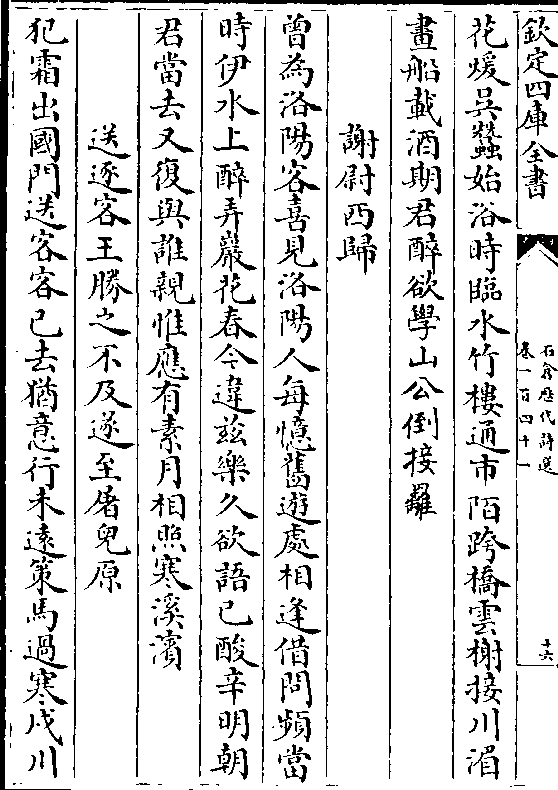 欽定四庫全書
石倉歷代詩選
卷一百四十一
十六
花煖吳蠶始浴時臨水竹樓通市陌跨橋雲榭接川湄
畫船載酒期君醉欲學山公倒接䍦
謝尉西歸
曽為洛陽客喜見洛陽人每憶舊遊處相逢借問頻當
時伊水上醉弄巖花春今違兹樂久欲語已酸辛明朝
君當去又復與誰親惟應有素月相照寒溪濱
送逐客王勝之不及遂至屠兒原
犯霜出國門送客客已去猶意行未遠策馬過寒戍川